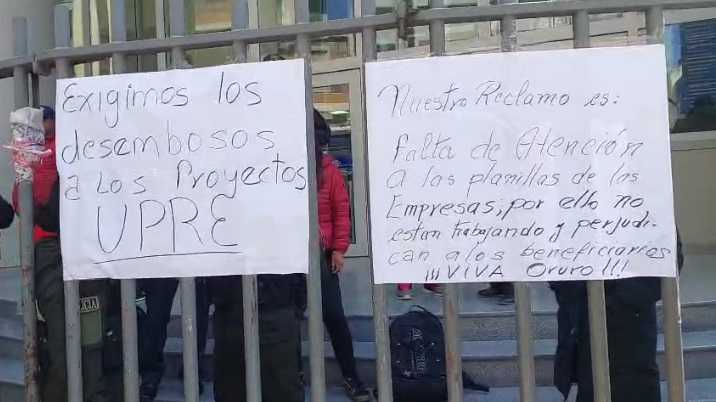 Exigimos los
desembosos
a los Proyectos
UPRE
Nuestro Reclamo es:
falta de Atención
a las planillas de las
Empresas, por ello no
estan trabajando y perjudi-
can a los beneficiarios
¡¡¡VIVA Oruro!!!